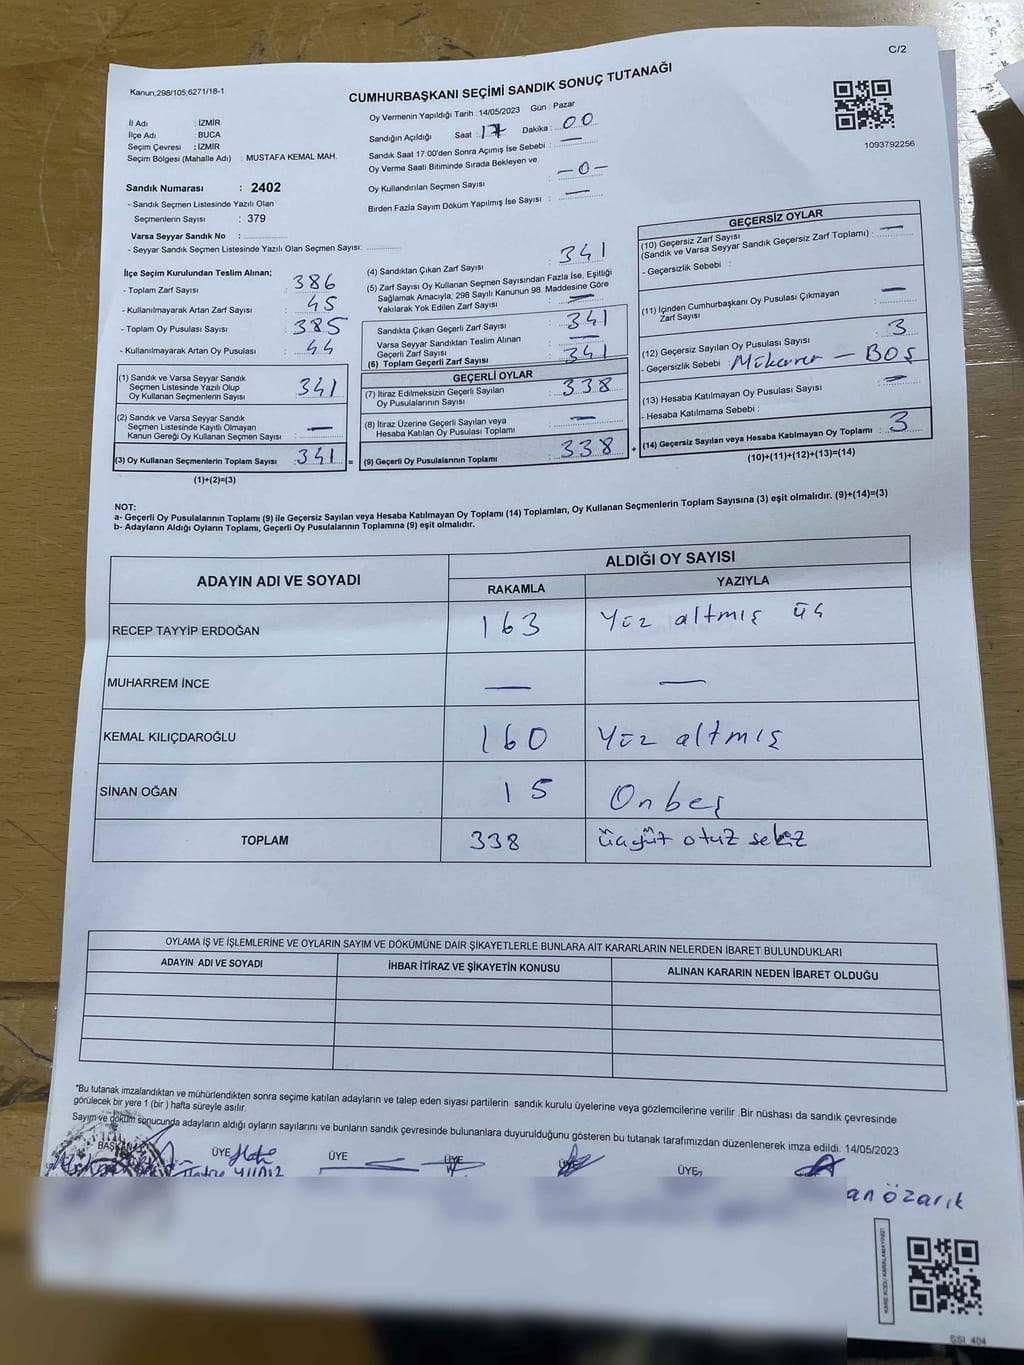 C/2
Kanun;298/105;6271/18-1
CUMHURBAŞKANI SEÇİMİ SANDIK SONUÇ TUTANAĞI
1093792256
İl Adı : İZMİR
İlçe Adı : BUCA
Seçim Çevresi : İZMİR
Seçim Bölgesi (Mahalle Adı) : MUSTAFA KEMAL MAH.
Sandık Numarası : 2402
- Sandık Seçmen Listesinde Yazılı Olan
Seçmenlerin Sayısı : 379
Varsa Seyyar Sandık No :
- Seyyar Sandık Seçmen Listesinde Yazılı Olan Seçmen Sayısı:
Oy Vermenin Yapıldığı Tarih : 14/05/2023 Gün : Pazar
Sandığın Açıldığı Saat : 17 Dakika : 00
Sandık Saat 17.00'den Sonra Açımış İse Sebebi : —
Oy Verme Saati Bitiminde Sırada Bekleyen ve
Oy Kullandırılan Seçmen Sayısı : —0—
Birden Fazla Sayım Döküm Yapılmış İse Sayısı : —
İlçe Seçim Kurulundan Teslim Alınan;
- Toplam Zarf Sayısı : 386
- Kullanılmayarak Artan Zarf Sayısı : 45
- Toplam Oy Pusulası Sayısı : 385
- Kullanılmayarak Artan Oy Pusulası : 44
(1) Sandık ve Varsa Seyyar Sandık
Seçmen Listesinde Yazılı Olup
Oy Kullanan Seçmenlerin Sayısı : 341
(2) Sandık ve Varsa Seyyar Sandık
Seçmen Listesinde Kayıtlı Olmayan
Kanun Gereği Oy Kullanan Seçmen Sayısı : —
(3) Oy Kullanan Seçmenlerin Toplam Sayısı : 341 =
(1)+(2)=(3)
(4) Sandıktan Çıkan Zarf Sayısı : 341
(5) Zarf Sayısı Oy Kullanan Seçmen Sayısından Fazla İse, Eşitliği
Sağlamak Amacıyla, 298 Sayılı Kanunun 98. Maddesine Göre
Yakılarak Yok Edilen Zarf Sayısı : —
Sandıkta Çıkan Geçerli Zarf Sayısı : 341
Varsa Seyyar Sandıktan Teslim Alınan
Geçerli Zarf Sayısı : —
(6) Toplam Geçerli Zarf Sayısı : 341
GEÇERLİ OYLAR
(7) İtiraz Edilmeksizin Geçerli Sayılan
Oy Pusulalarının Sayısı : 338
(8) İtiraz Üzerine Geçerli Sayılan veya
Hesaba Katılan Oy Pusulası Toplamı : —
(9) Geçerli Oy Pusulalarının Toplamı : 338 +
GEÇERSİZ OYLAR
(10) Geçersiz Zarf Sayısı
(Sandık ve Varsa Seyyar Sandık Geçersiz Zarf Toplamı) : —
- Geçersizlik Sebebi :
(11) İçinden Cumhurbaşkanı Oy Pusulası Çıkmayan
Zarf Sayısı : —
(12) Geçersiz Sayılan Oy Pusulası Sayısı : 3
- Geçersizlik Sebebi Mükerrer — BOŞ
(13) Hesaba Katılmayan Oy Pusulası Sayısı : —
- Hesaba Katılmama Sebebi :
(14) Geçersiz Sayılan veya Hesaba Katılmayan Oy Toplamı : 3
(10)+(11)+(12)+(13)=(14)
NOT:
a- Geçerli Oy Pusulalarının Toplamı (9) ile Geçersiz Sayılan veya Hesaba Katılmayan Oy Toplamı (14) Toplamları, Oy Kullanan Seçmenlerin Toplam Sayısına (3) eşit olmalıdır. (9)+(14)=(3)
b- Adayların Aldığı Oyların Toplamı, Geçerli Oy Pusulalarının Toplamına (9) eşit olmalıdır.
ADAYIN ADI VE SOYADI
ALDIĞI OY SAYISI
RAKAMLA YAZIYLA
RECEP TAYYİP ERDOĞAN 163 Yüz altmış üç
MUHARREM İNCE — —
KEMAL KILIÇDAROĞLU 160 Yüz altmış
SİNAN OĞAN 15 Onbeş
TOPLAM 338 üçyüt otuz sekiz
OYLAMA İŞ VE İŞLEMLERİNE VE OYLARIN SAYIM VE DÖKÜMÜNE DAİR ŞİKAYETLERLE BUNLARA AİT KARARLARIN NELERDEN İBARET BULUNDUKLARI
ADAYIN ADI VE SOYADI İHBAR İTİRAZ VE ŞİKAYETİN KONUSU ALINAN KARARIN NEDEN İBARET OLDUĞU
*Bu tutanak imzalandıktan ve mühürlendikten sonra seçime katılan adayların ve talep eden siyasi partilerin sandık kurulu üyelerine veya gözlemcilerine verilir .Bir nüshası da sandık çevresinde
görülecek bir yere 1 (bir ) hafta süreyle asılır.
Sayım ve döküm sonucunda adayların aldığı oyların sayılarını ve bunların sandık çevresinde bulunanlara duyurulduğunu gösteren bu tutanak tarafımızdan düzenlenerek imza edildi. 14/05/2023
BAŞKAN ÜYE ÜYE ÜYE ÜYE ÜYE
YILDIZ
an özarık
SSI 404